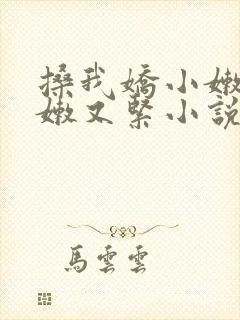 搡我嬌小嫩
嫩又緊小說
馬雲雲